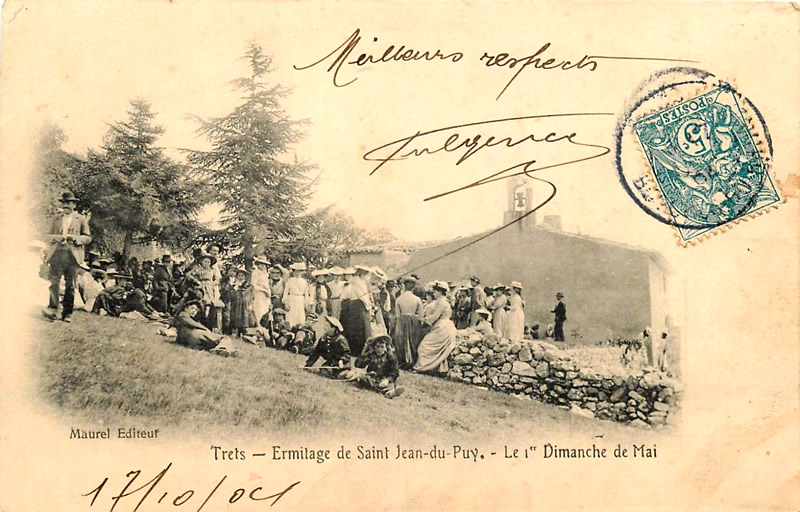 Meilleurs respects
Fulgence
POSTES
5
Maurel Editeur
Trets — Ermitage de Saint Jean-du-Puy. - Le 1er Dimanche de Mai
17/10/04